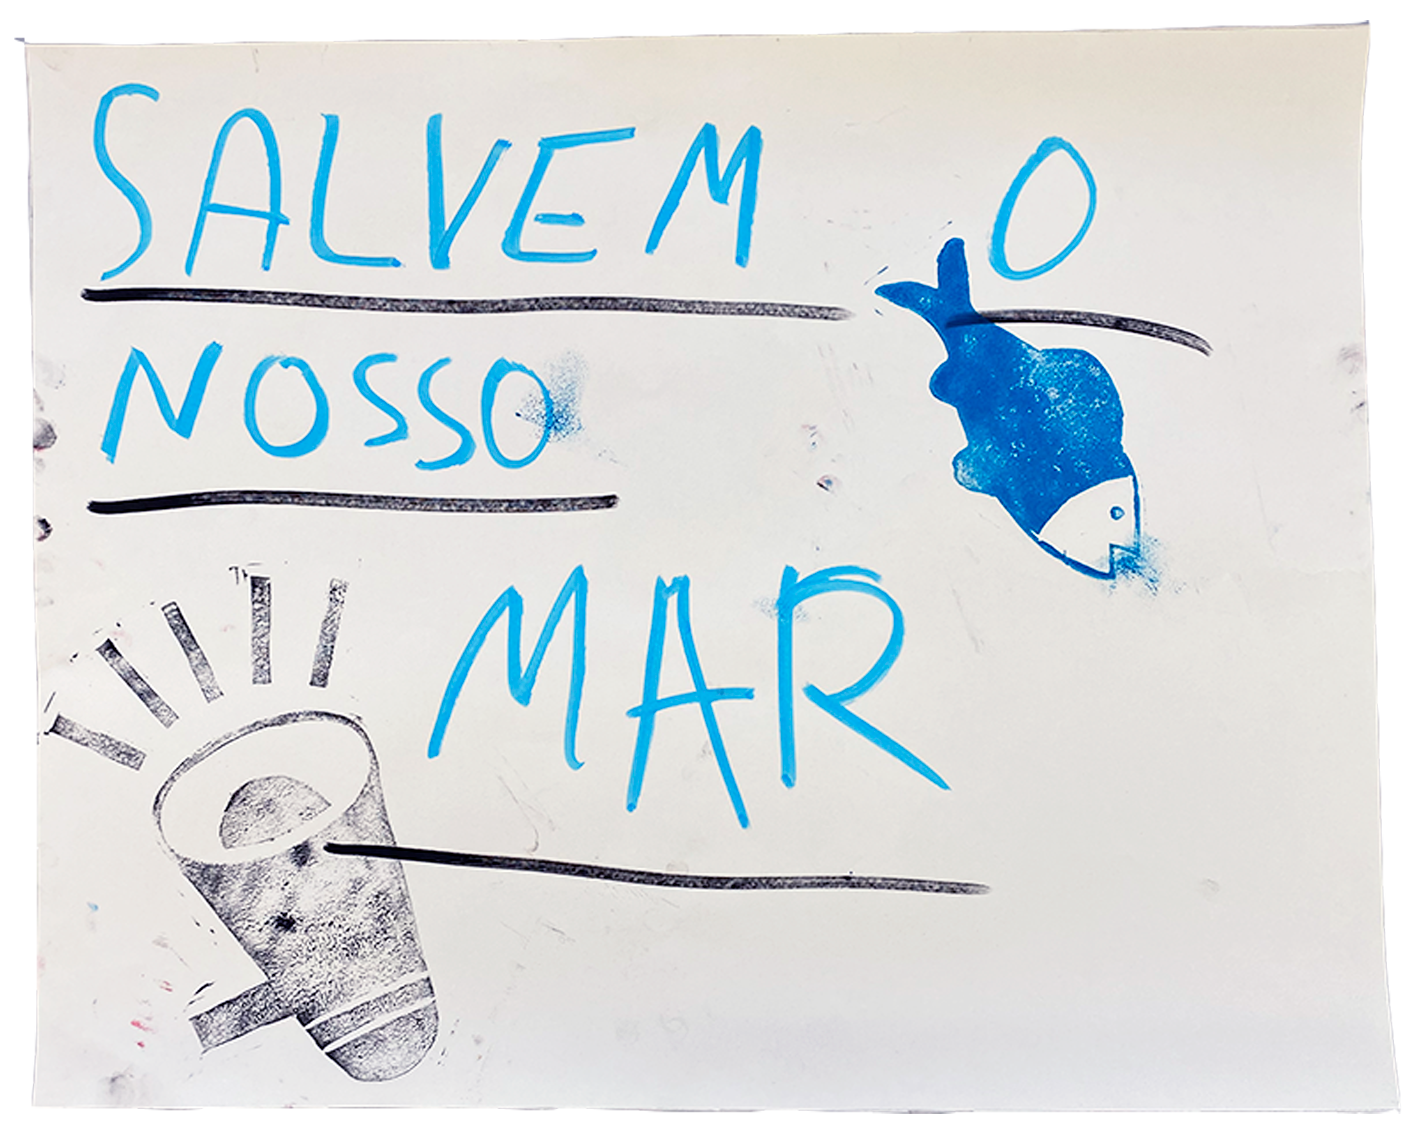 SALVEM O
NOSSO
MAR